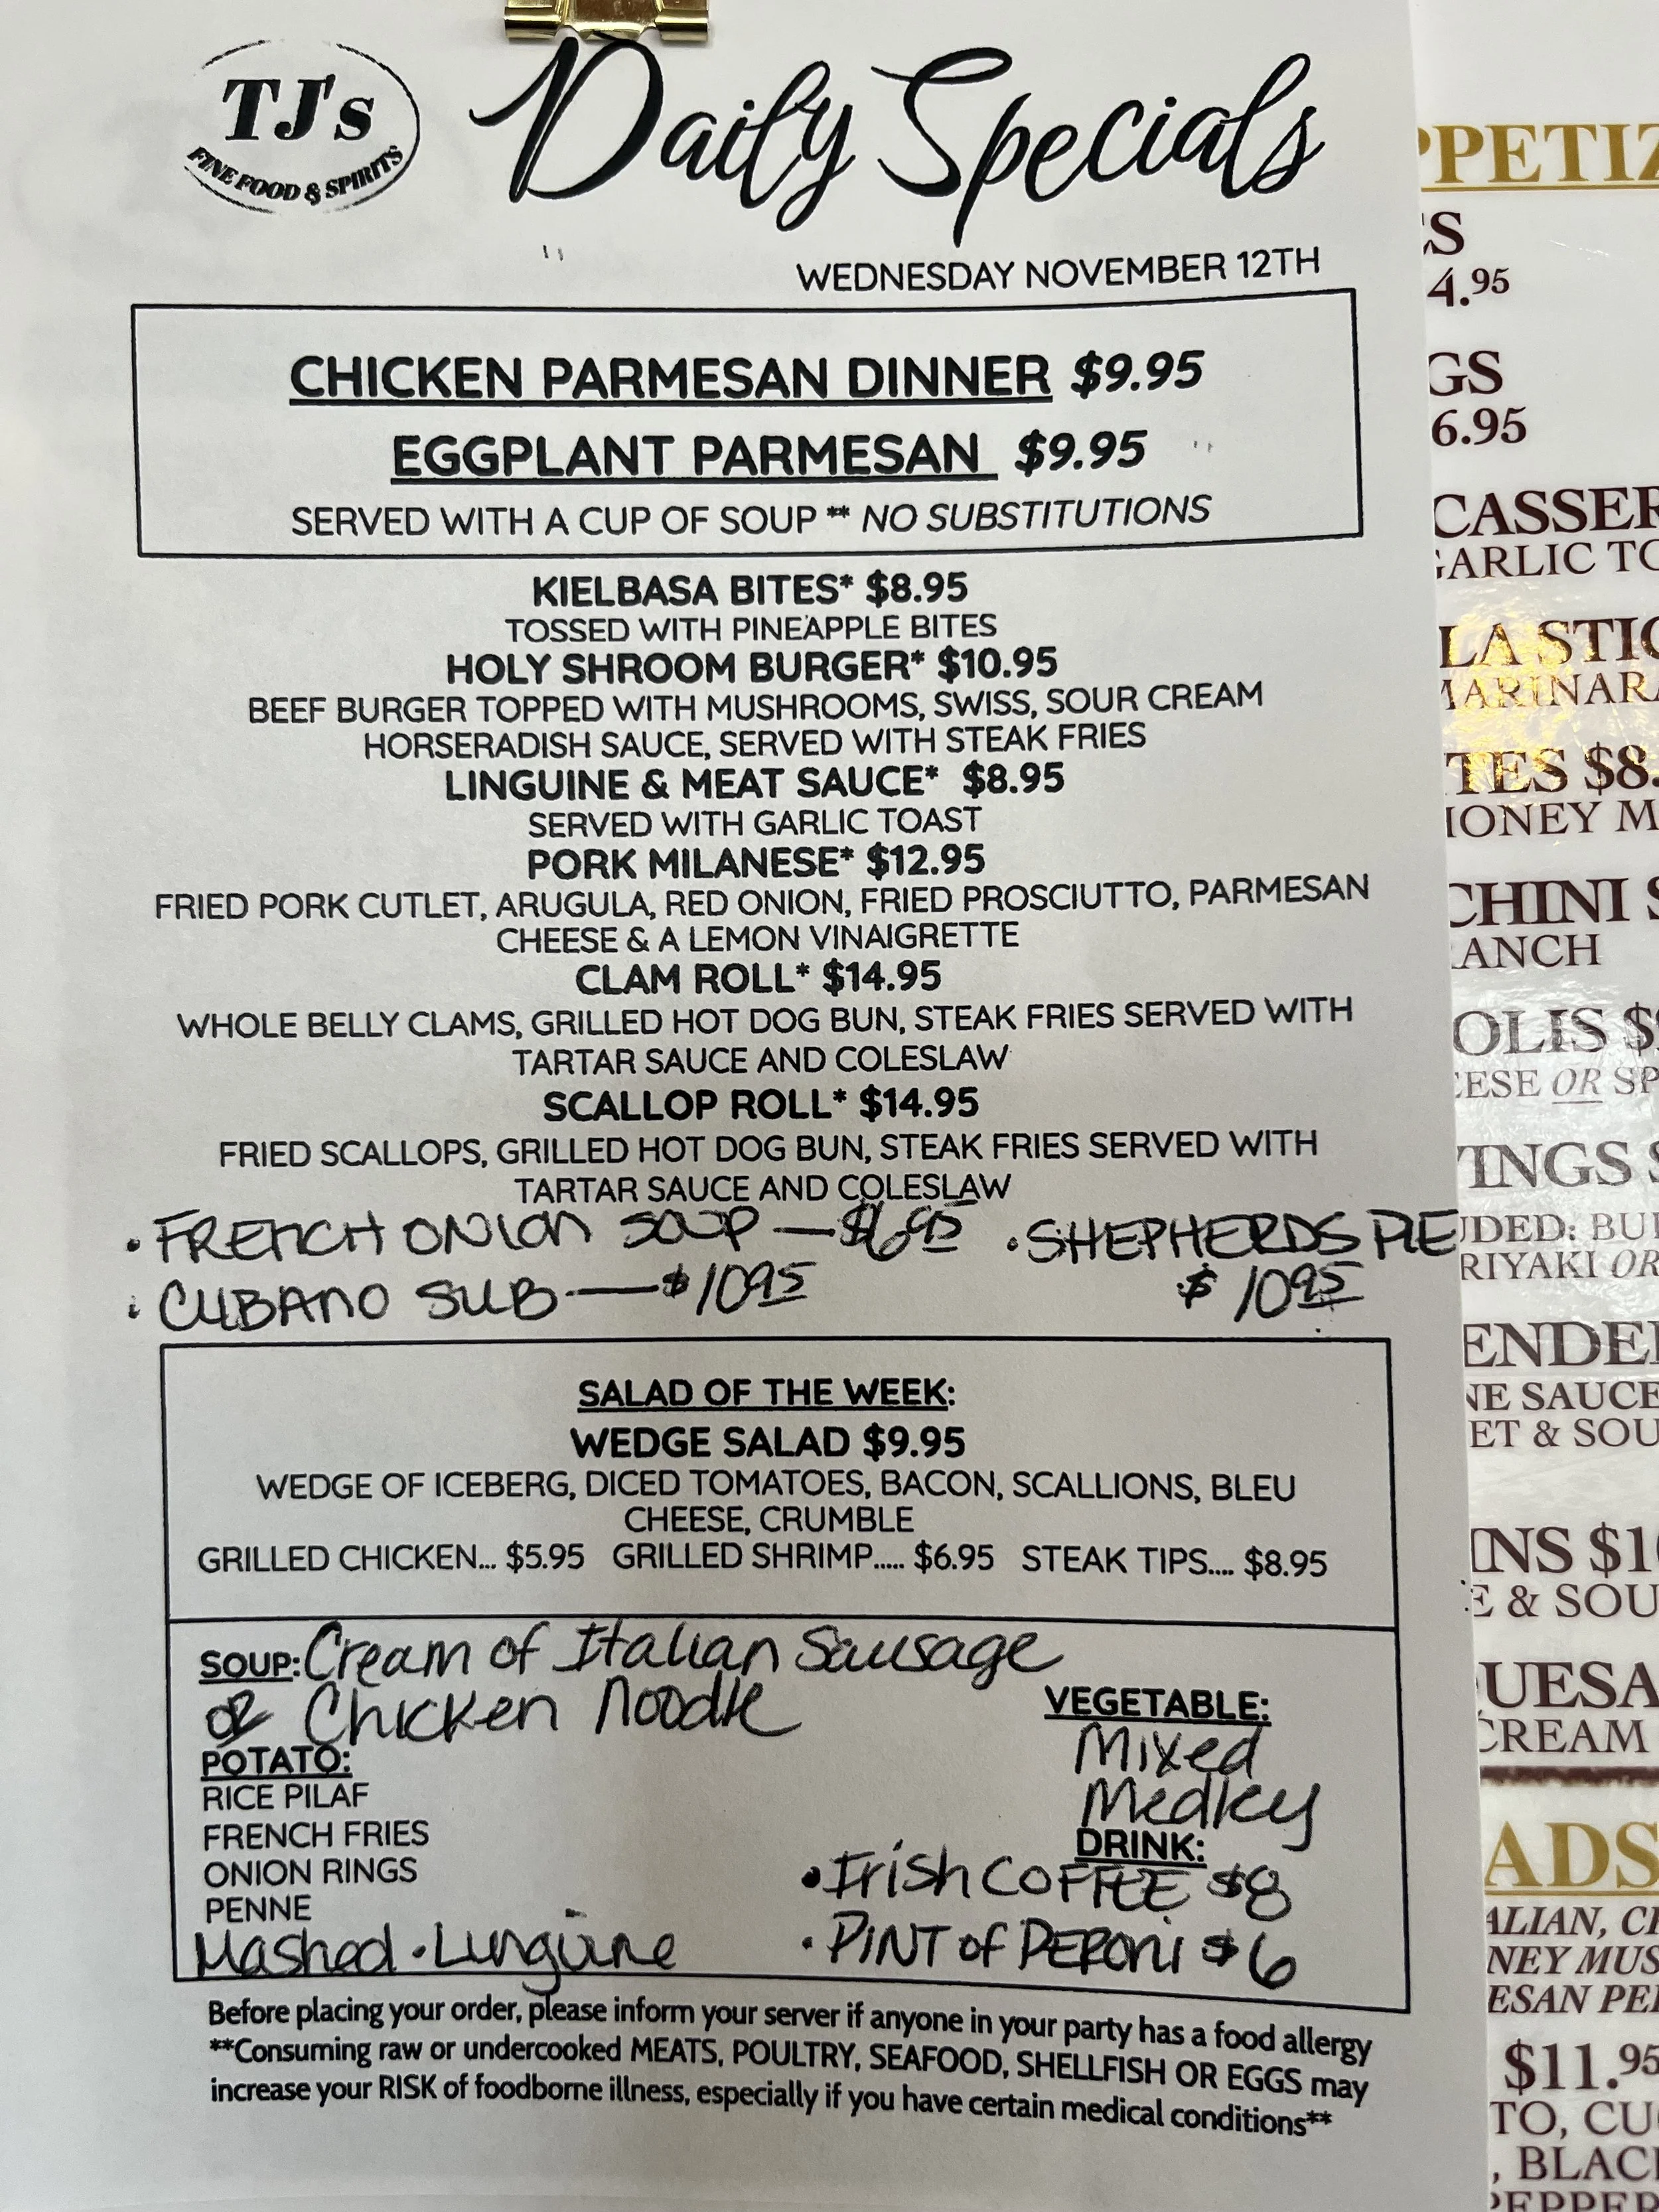 TJ's
FINE FOOD & SPIRITS
Daily Specials
WEDNESDAY NOVEMBER 12TH
CHICKEN PARMESAN DINNER $9.95
EGGPLANT PARMESAN $9.95
SERVED WITH A CUP OF SOUP ** NO SUBSTITUTIONS
KIELBASA BITES* $8.95
TOSSED WITH PINEAPPLE BITES
HOLY SHROOM BURGER* $10.95
BEEF BURGER TOPPED WITH MUSHROOMS, SWISS, SOUR CREAM
HORSERADISH SAUCE, SERVED WITH STEAK FRIES
LINGUINE & MEAT SAUCE* $8.95
SERVED WITH GARLIC TOAST
PORK MILANESE* $12.95
FRIED PORK CUTLET, ARUGULA, RED ONION, FRIED PROSCIUTTO, PARMESAN
CHEESE & A LEMON VINAIGRETTE
CLAM ROLL* $14.95
WHOLE BELLY CLAMS, GRILLED HOT DOG BUN, STEAK FRIES SERVED WITH
TARTAR SAUCE AND COLESLAW
SCALLOP ROLL* $14.95
FRIED SCALLOPS, GRILLED HOT DOG BUN, STEAK FRIES SERVED WITH
TARTAR SAUCE AND COLESLAW
• FRENCH ONION SOUP — $6.95 • SHEPHERDS PIE
• CUBANO SUB — $10.95 $10.95
SALAD OF THE WEEK:
WEDGE SALAD $9.95
WEDGE OF ICEBERG, DICED TOMATOES, BACON, SCALLIONS, BLEU
CHEESE, CRUMBLE
GRILLED CHICKEN... $5.95 GRILLED SHRIMP..... $6.95 STEAK TIPS.... $8.95
SOUP: Cream of Italian Sausage
OR Chicken Noodle
VEGETABLE:
Mixed
Medley
POTATO:
RICE PILAF
FRENCH FRIES
ONION RINGS
PENNE
Mashed • Linguine
DRINK:
• Irish COFFEE $8
• PINT of PERONI $6
Before placing your order, please inform your server if anyone in your party has a food allergy
**Consuming raw or undercooked MEATS, POULTRY, SEAFOOD, SHELLFISH OR EGGS may
increase your RISK of foodborne illness, especially if you have certain medical conditions**
4.95
6.95
GARLIC TO
$8.
HONEY M
RANCH
OR SP
& SOU
$1
& SOU
CREAM
$11.95